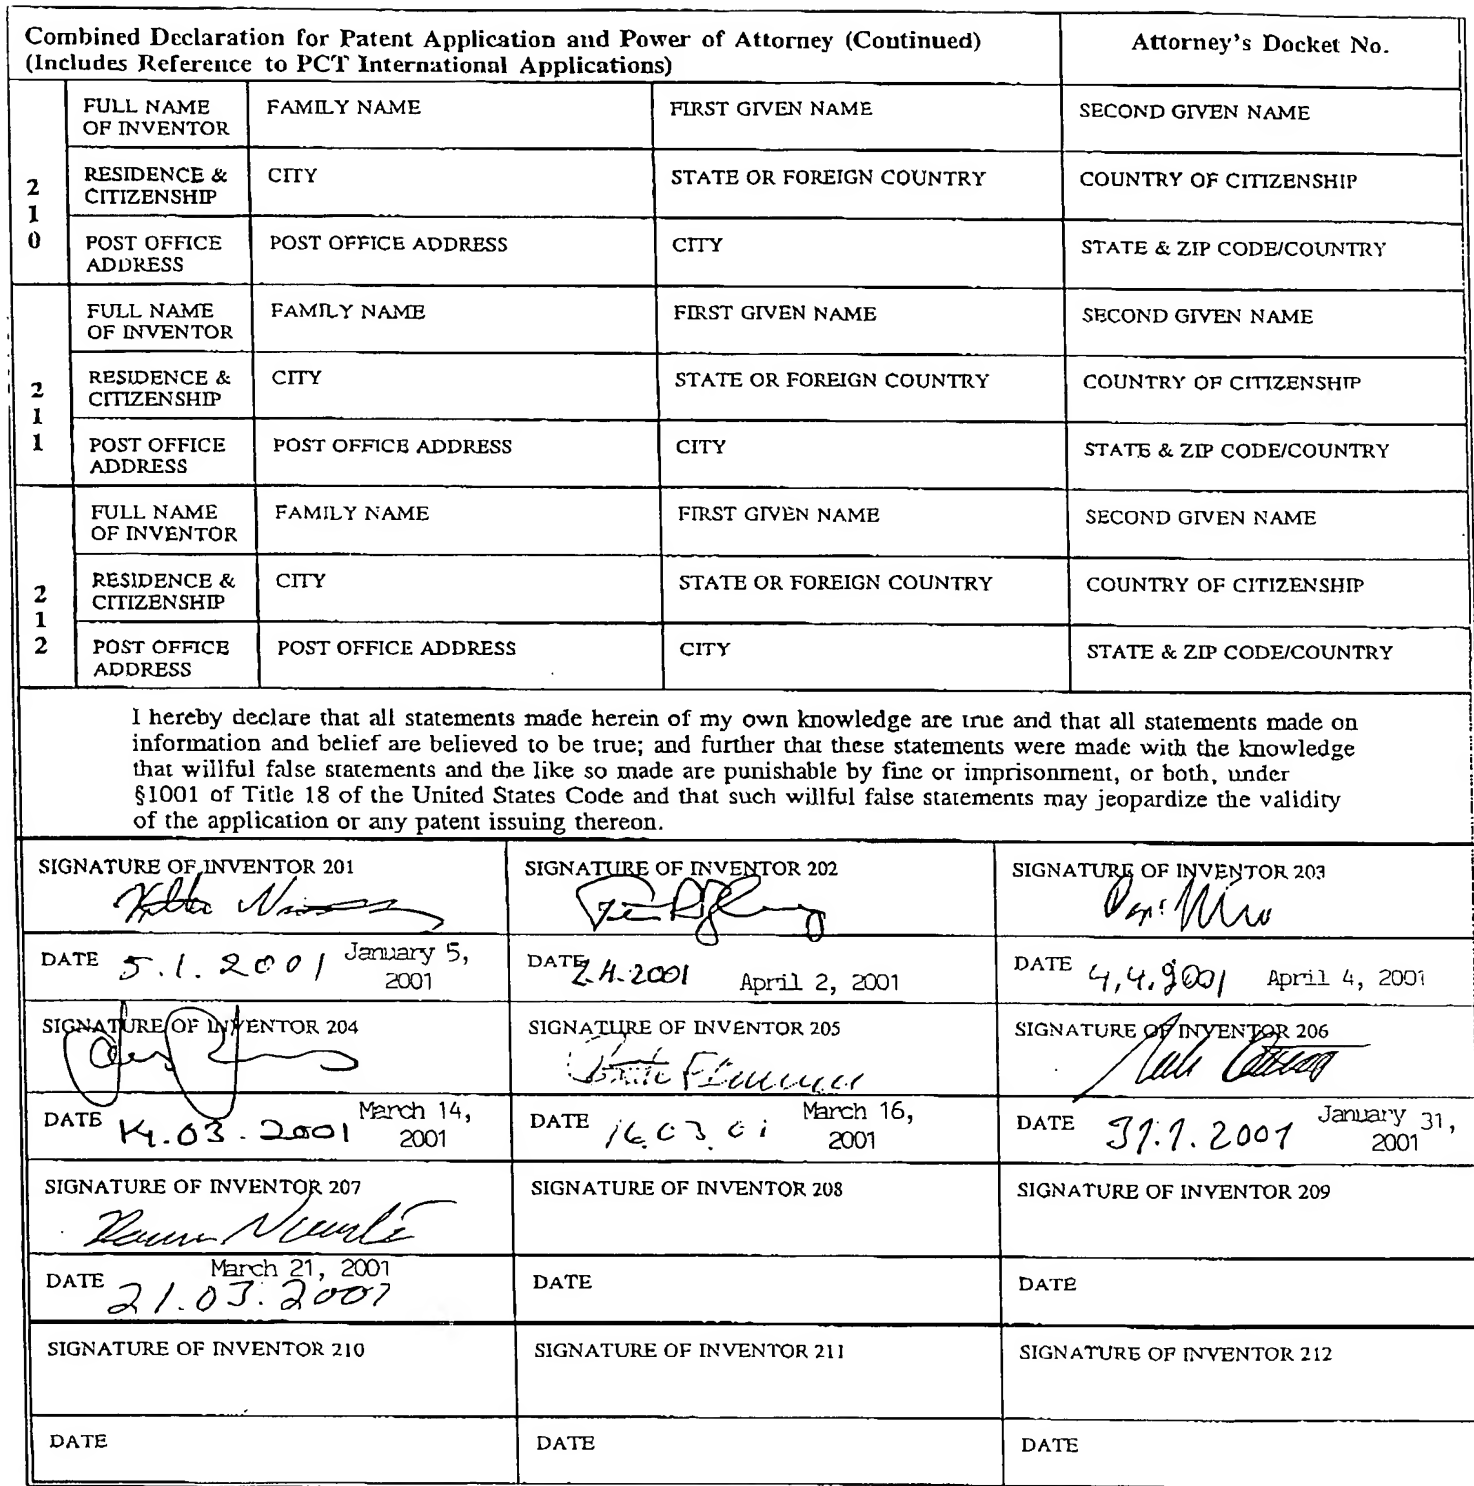 Combined Declaration for Patent Application and Power of Attorney (Continued)
(Includes Reference to PCT International Applications)
Attorney's Docket No.
210
FULL NAME
OF INVENTOR
FAMILY NAME
FIRST GIVEN NAME
SECOND GIVEN NAME
RESIDENCE &
CITIZENSHIP
CITY
STATE OR FOREIGN COUNTRY
COUNTRY OF CITIZENSHIP
POST OFFICE
ADDRESS
POST OFFICE ADDRESS
CITY
STATE & ZIP CODE/COUNTRY
211
FULL NAME
OF INVENTOR
FAMILY NAME
FIRST GIVEN NAME
SECOND GIVEN NAME
RESIDENCE &
CITIZENSHIP
CITY
STATE OR FOREIGN COUNTRY
COUNTRY OF CITIZENSHIP
POST OFFICE
ADDRESS
POST OFFICE ADDRESS
CITY
STATE & ZIP CODE/COUNTRY
212
FULL NAME
OF INVENTOR
FAMILY NAME
FIRST GIVEN NAME
SECOND GIVEN NAME
RESIDENCE &
CITIZENSHIP
CITY
STATE OR FOREIGN COUNTRY
COUNTRY OF CITIZENSHIP
POST OFFICE
ADDRESS
POST OFFICE ADDRESS
CITY
STATE & ZIP CODE/COUNTRY
I hereby declare that all statements made herein of my own knowledge are true and that all statements made on
information and belief are believed to be true; and further that these statements were made with the knowledge
that willful false statements and the like so made are punishable by fine or imprisonment, or both, under
§1001 of Title 18 of the United States Code and that such willful false statements may jeopardize the validity
of the application or any patent issuing thereon.
SIGNATURE OF INVENTOR 201
SIGNATURE OF INVENTOR 202
SIGNATURE OF INVENTOR 203
DATE 5.1.2001 January 5,
2001
DATE 2.4.2001 April 2, 2001
DATE 4.4.2001 April 4, 2001
SIGNATURE OF INVENTOR 204
SIGNATURE OF INVENTOR 205
SIGNATURE OF INVENTOR 206
DATE 14.03.2001 March 14,
2001
DATE 16.03.01 March 16,
2001
DATE 31.1.2001 January 31,
2001
SIGNATURE OF INVENTOR 207
SIGNATURE OF INVENTOR 208
SIGNATURE OF INVENTOR 209
March 21, 2001
DATE 21.03.2001
DATE
DATE
SIGNATURE OF INVENTOR 210
SIGNATURE OF INVENTOR 211
SIGNATURE OF INVENTOR 212
DATE
DATE
DATE